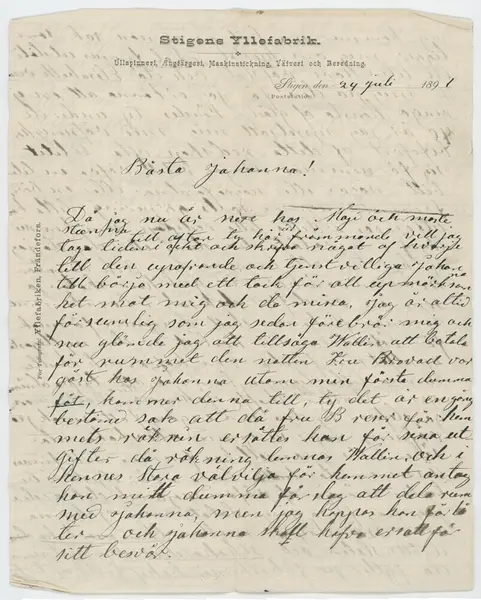 Stigens Yllefabrik.
Ullspinneri, Ångfärgeri, Maskinstickning, Väfveri och Beredning.
Stigen den 24 Juli 1891
Poststation
Bästa Johanna!
Då jag nu är nere hos Maji och måste
stanna till efter ty här är främmande vill jag
taga tiden i akt och skrifva något af hvarje
till den uppofrande och tjenstvilliga Johanna
till börja med ett tack för all upmärksam
het mot mig och de mina, jag är altid
försumlig som jag sedan förebrår mig och
nu glömde jag att tillsäga Wallin att betala
för rummet den natten Fru Brovad var
gäst hos Johanna utom min första dumma
het, kommer denna till, ty det är en gång
bestämd sak att då fru B reser för hem
mets räkning ersättes hon för sina ut
gifter då räkning lemnas Wallin och i
hennes stora välvilja för hemmet antog
hon mitt dumma förslag att dela rum
med Johanna, men jag hoppas hon förlå
ter och Johanna skall hafva ersätt för
sitt besvär.
Yllefabriken, Frändefors.